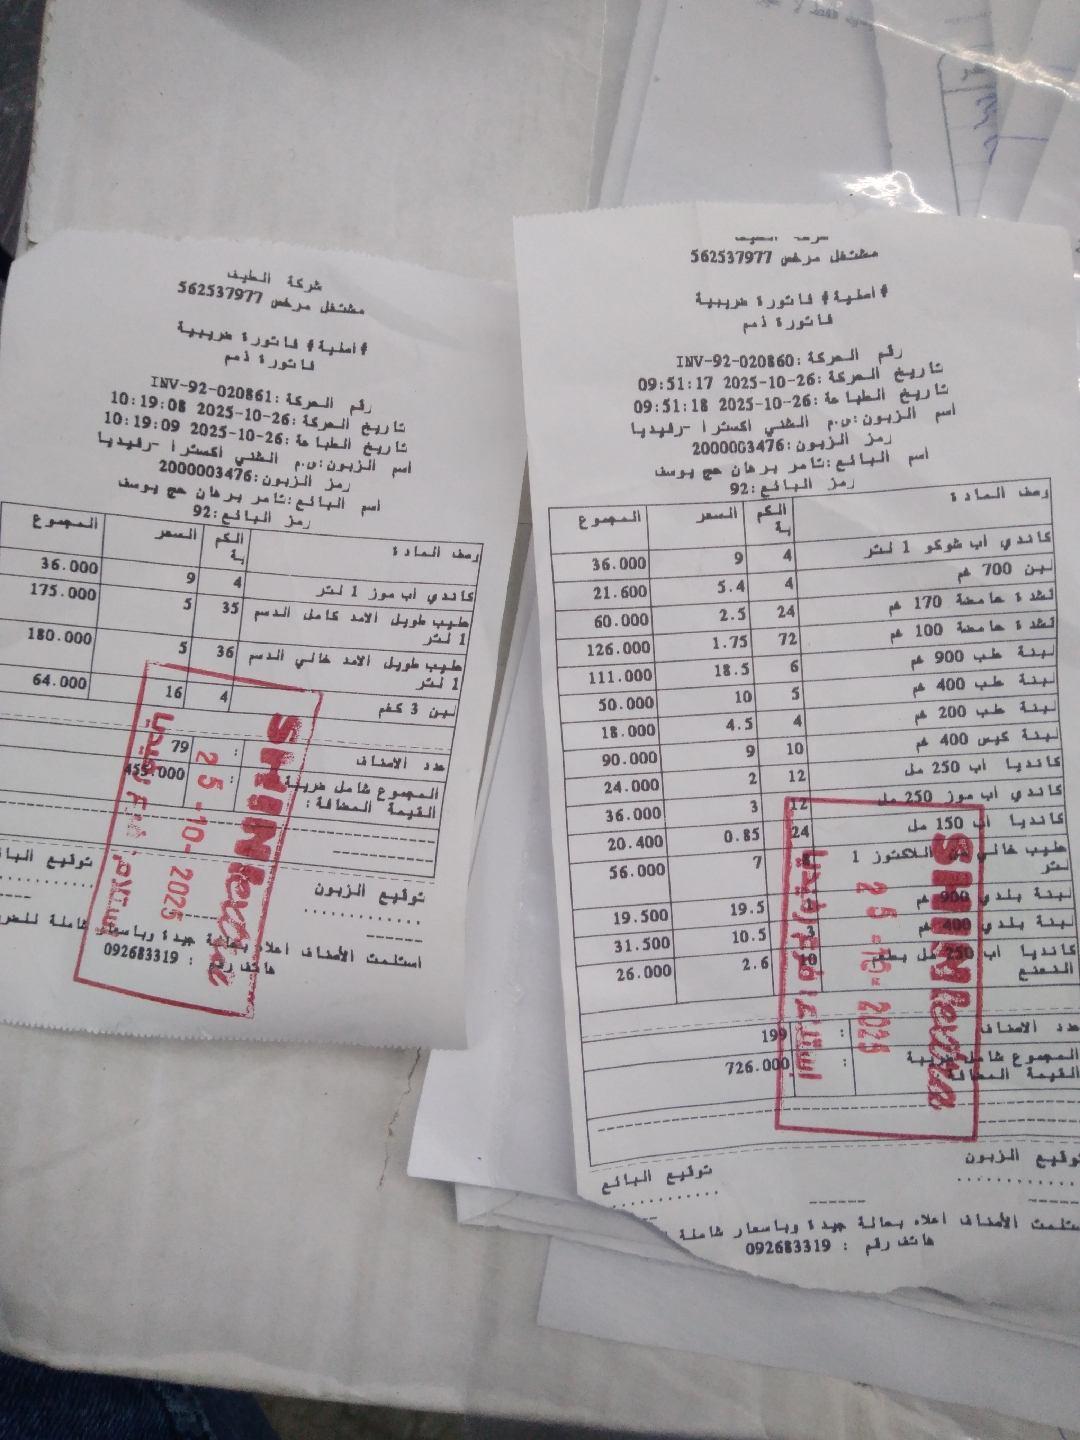 شركة الطيف
مشتغل مرخص 562537977
#اصلية# فاتورة ضريبية
فاتورة ذمم
رقم الحركة: INV-92-020861
تاريخ الحركة: 26-10-2025 10:19:08
تاريخ الطباعة: 26-10-2025 10:19:09
اسم الزبون: ص.م الشني اكسترا - رفيديا
رمز الزبون: 2000003476
اسم البائع: تامر برهان حج يوسف
رمز البائع: 92
وصف المادة الكمية السعر المجموع
كاندي اب موز 1 لتر 4 9 36.000
حليب طويل الامد كامل الدسم 1 لتر 35 5 175.000
حليب طويل الامد خالي الدسم 1 لتر 36 5 180.000
لبن 3 كغم 4 16 64.000
عدد الاصناف : 79
المجموع شامل ضريبة القيمة المضافة: : 455.000
توقيع الزبون
توقيع البائع
استلمت الأصناف أعلاه بحالة جيدة وباسعار شاملة للضر
هاتف رقم : 092683319
SHINI extra
25-10-2025
استلام فرع رفيديا
مشتغل مرخص 562537977
#اصلية# فاتورة ضريبية
فاتورة ذمم
رقم الحركة: INV-92-020860
تاريخ الحركة: 26-10-2025 09:51:17
تاريخ الطباعة: 26-10-2025 09:51:18
اسم الزبون: ص.م الشني اكسترا - رفيديا
رمز الزبون: 2000003476
اسم البائع: تامر برهان حج يوسف
رمز البائع: 92
وصف المادة الكمية السعر المجموع
كاندي اب شوكو 1 لتر 4 9 36.000
لبن 700 غم 4 5.4 21.600
قشدة حامضة 170 غم 24 2.5 60.000
قشدة حامضة 100 غم 72 1.75 126.000
لبنة علب 900 غم 6 18.5 111.000
لبنة علب 400 غم 5 10 50.000
لبنة علب 200 غم 4 4.5 18.000
لبنة كيس 400 غم 10 9 90.000
كانديا اب 250 مل 12 2 24.000
كاندي اب موز 250 مل 12 3 36.000
كانديا اب 150 مل 24 0.85 20.400
حليب خالي من اللاكتوز 1 لتر 7 56.000
لبنة بلدي 900 غم 19.5 19.500
لبنة بلدي 400 غم 3 10.5 31.500
كانديا اب 250 مل بطعم النعنع 10 2.6 26.000
عدد الاصناف : 199
المجموع شامل ضريبة القيمة المضافة : 726.000
توقيع الزبون
توقيع البائع
ستلمت الأصناف أعلاه بحالة جيدة وباسعار شاملة
هاتف رقم : 092683319
SHINI extra
25-10-2025
استلام فرع رفيديا